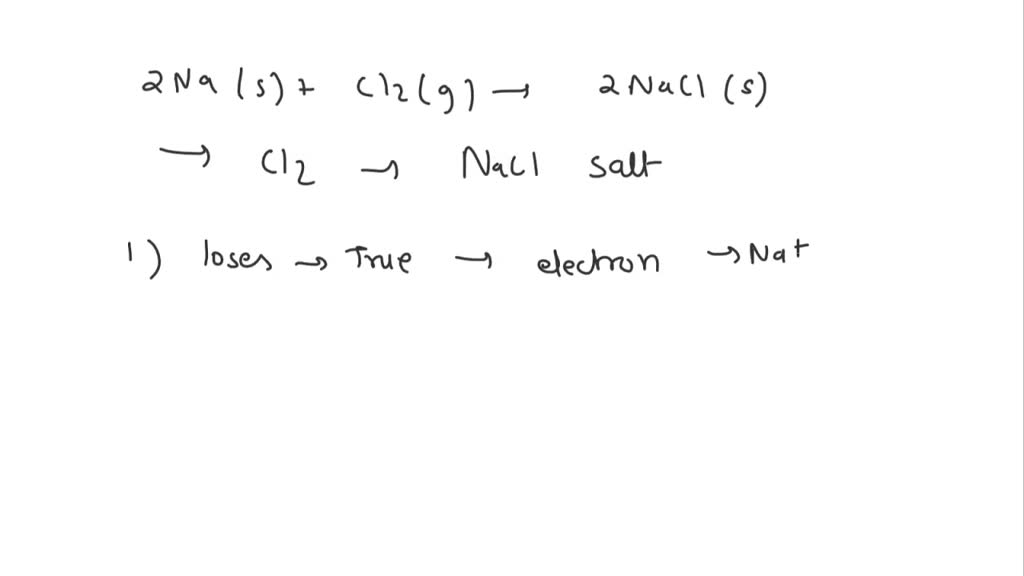 2Na (s) + Cl2(g) → 2NaCl (s)
→ Cl2 → NaCl salt
1) loses → True → electron → Na+